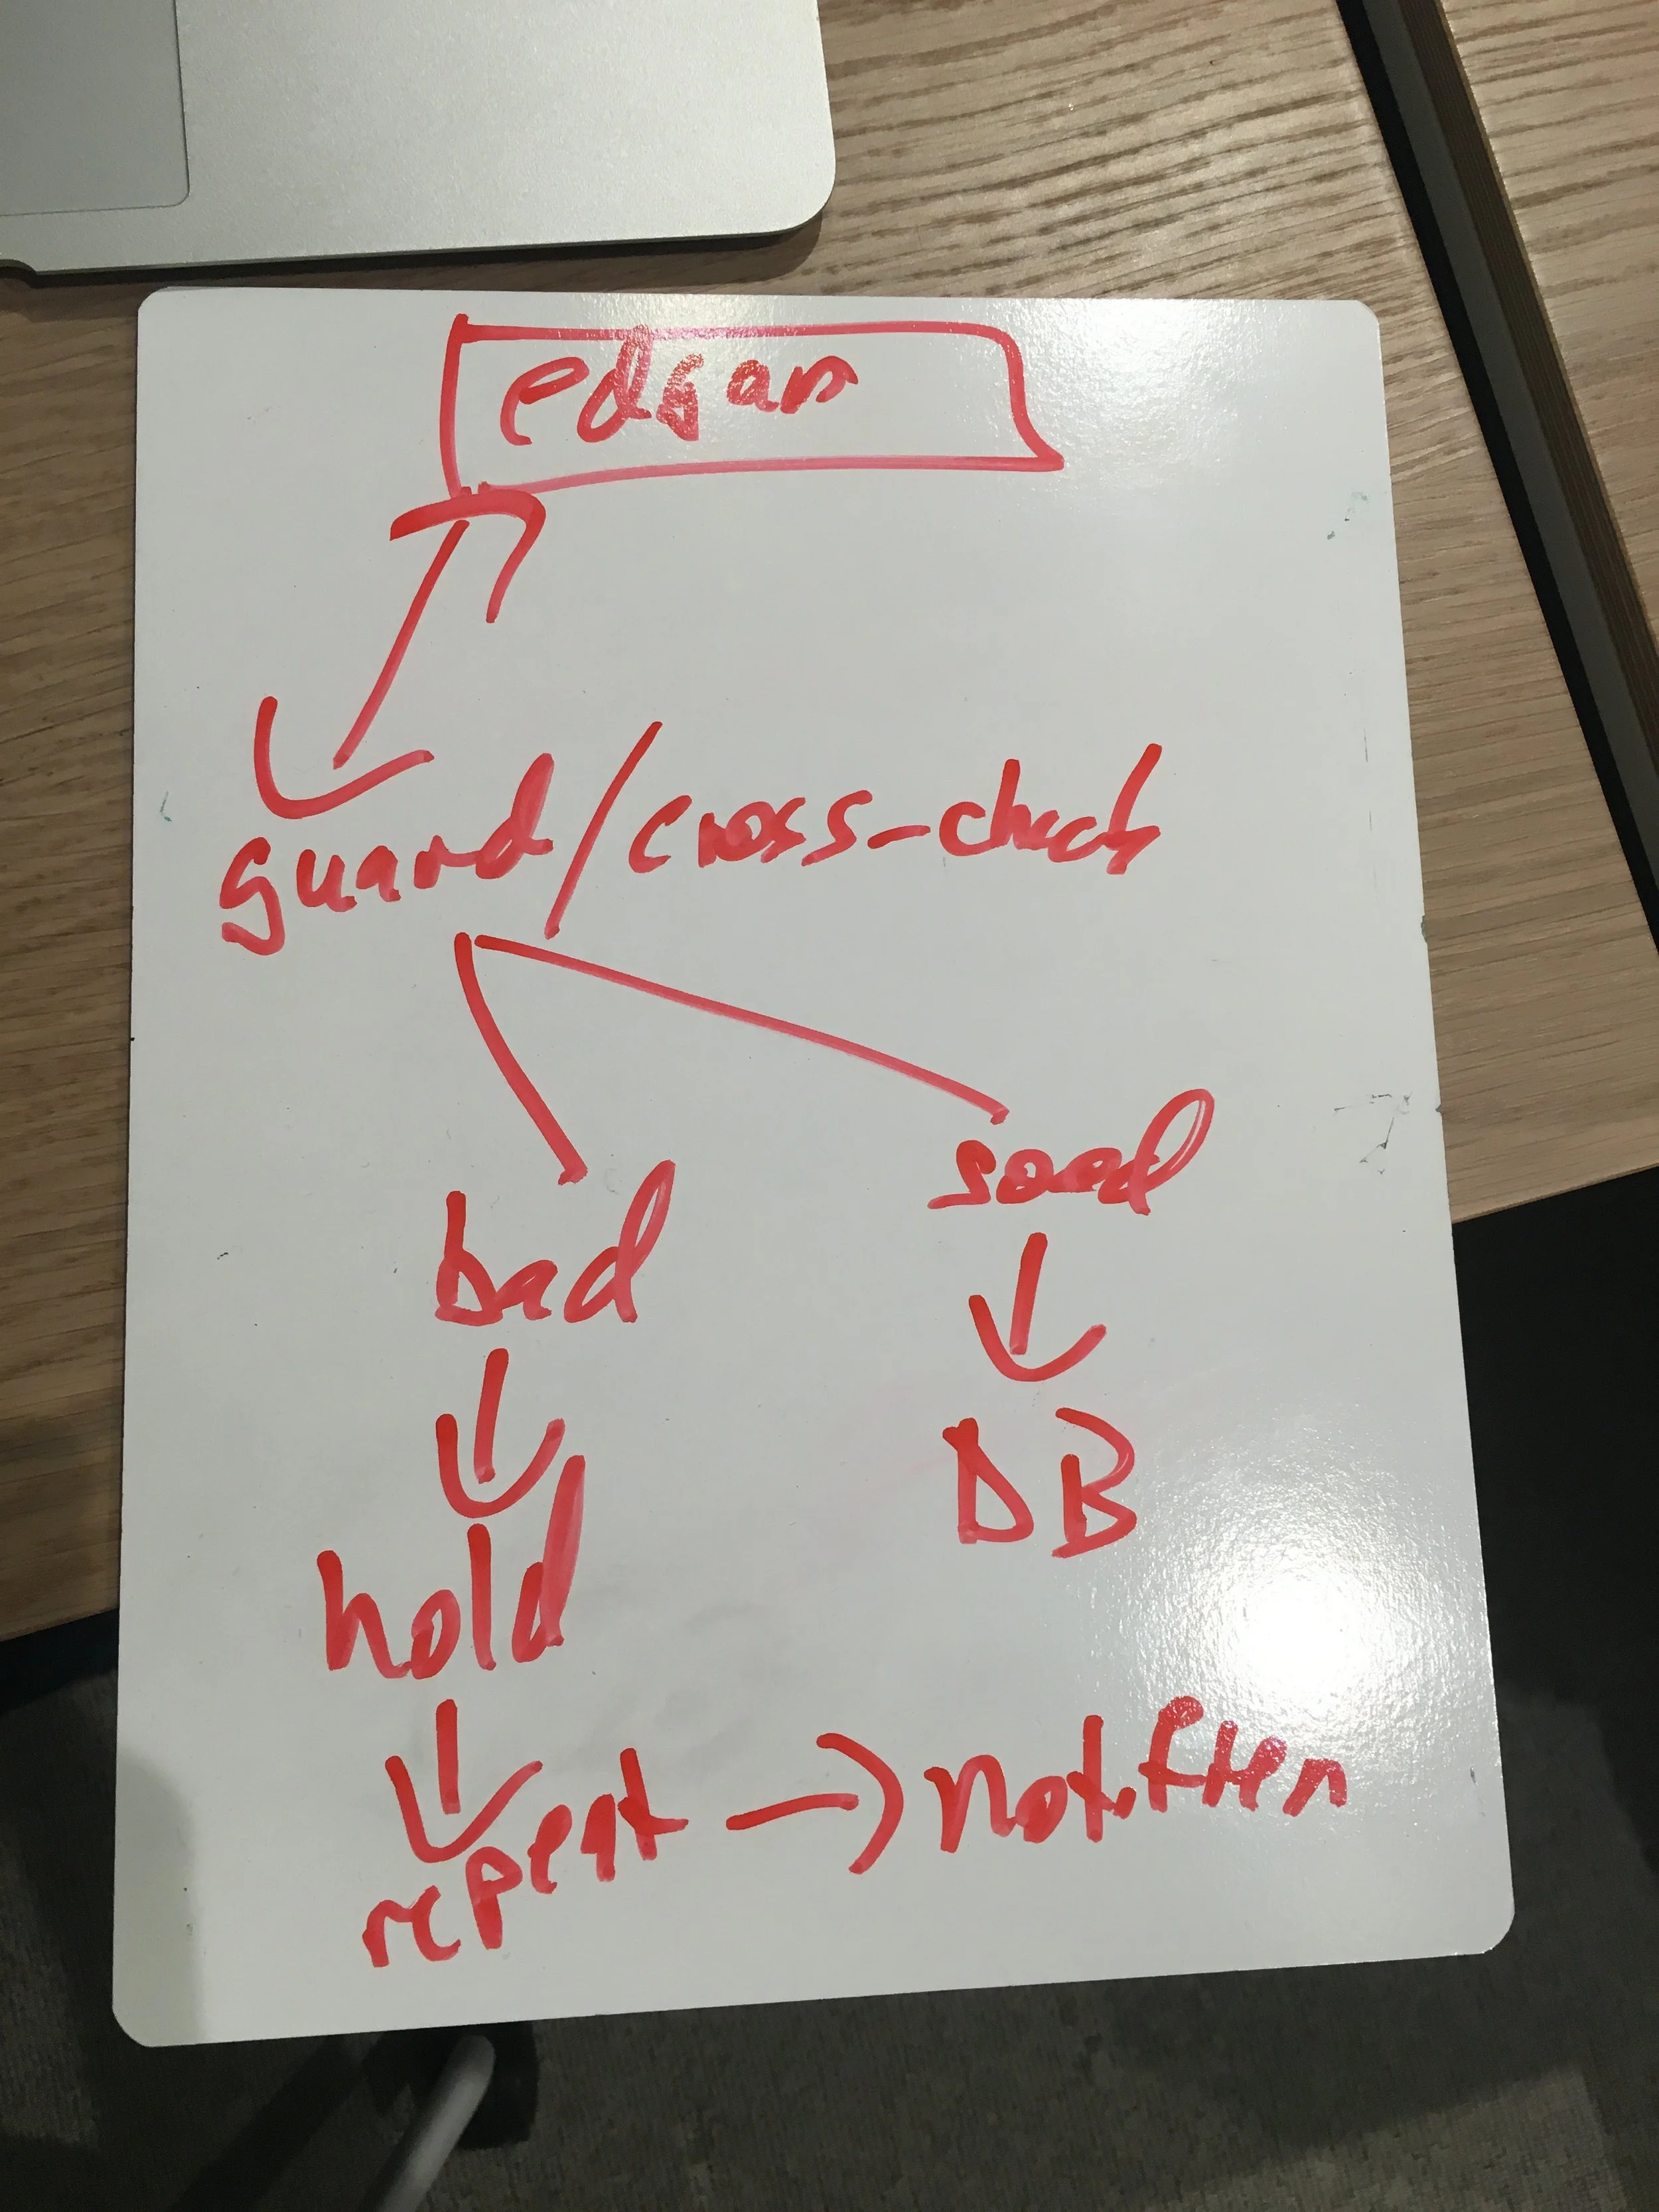 edgar
guard/cross-check
bad
good
DB
hold
repeat → notifier